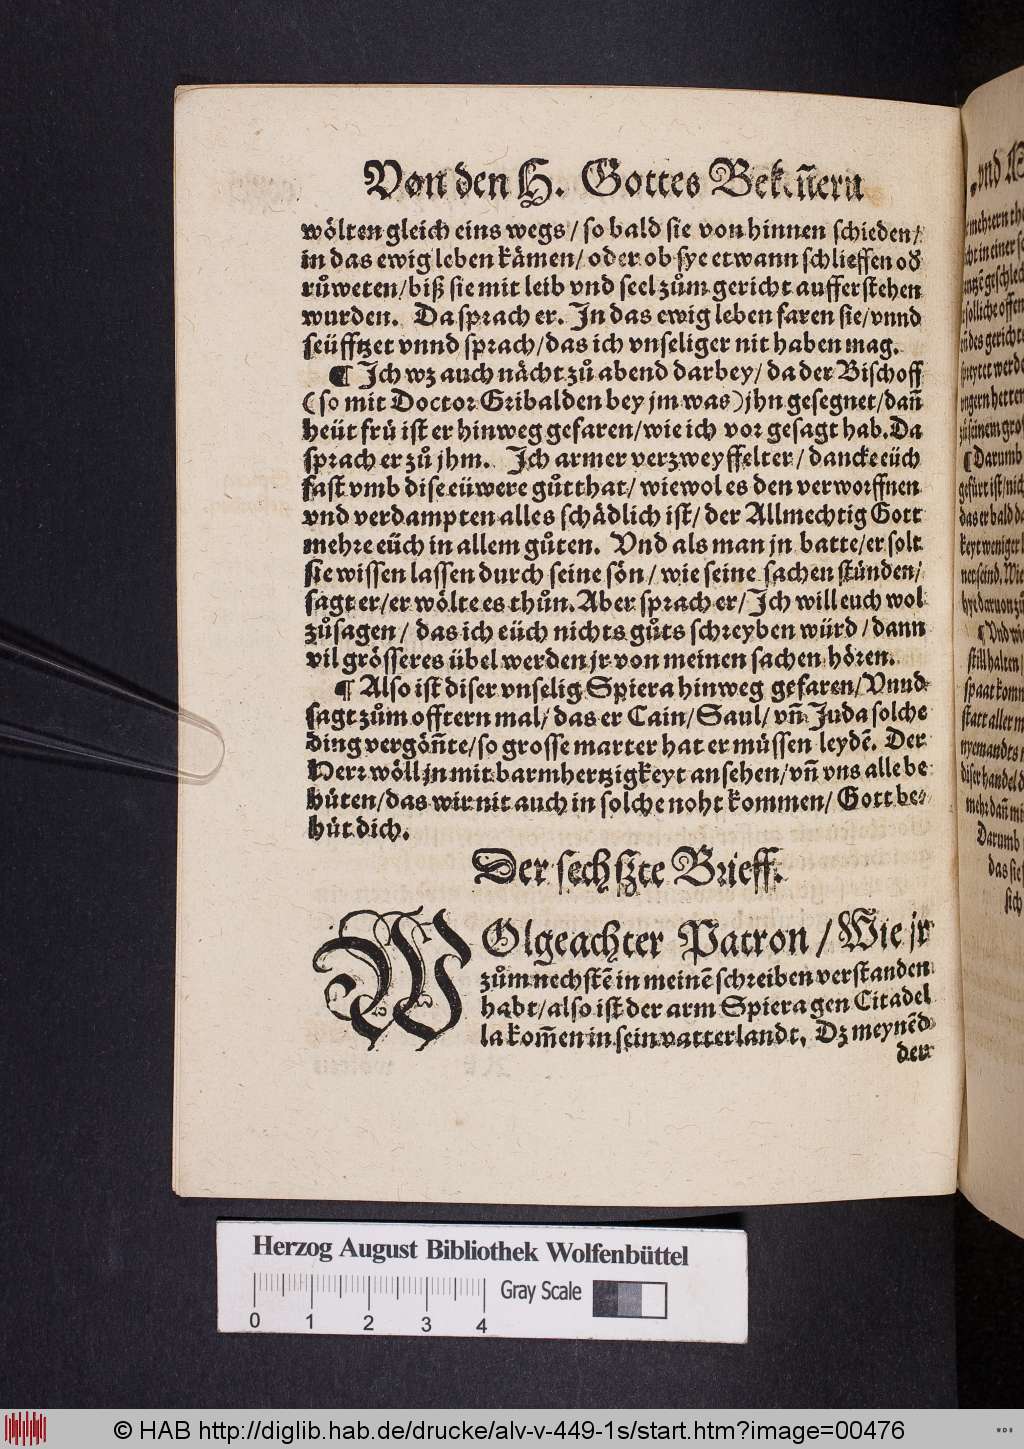 Von den H. Gottes Bekeñern
wölten gleich eins wegs / so bald sie von hinnen schieden /
in das ewig leben kämen / oder ob sye etwann schlieffen od
růweten / biß sie mit leib vnd seel zům gericht aufferstehen
wurden. Da sprach er. In das ewig leben faren sie / vnnd
seüfftzet vnnd sprach / das ich vnseliger nit haben mag.
¶ Ich wz auch nächt zů abend darbey / da der Bischoff
(so mit Doctor Gribalden bey jm was) jhn gesegnet / dañ
heüt frü ist er hinweg gefaren / wie ich vor gesagt hab. Da
sprach er zů jhm. Ich armer verzweyffelter / dancke eüch
fast vmb dise eüwere gůtthat / wiewol es den verworffnen
vnd verdampten alles schädlich ist / der Allmechtig Gott
mehre eüch in allem gůten. Vnd als man jn batte / er solt
sie wissen lassen durch seine sön / wie seine sachen stünden /
sagt er / er wölte es thůn. Aber sprach er / Ich will euch wol
zůsagen / das ich eüch nichts gůts schreyben würd / dann
vil grösseres übel werden jr von meinen sachen hören.
¶ Also ist diser vnselig Spiera hinweg gefaren / Vnnd
sagt zům offtern mal / das er Cain / Saul / vñ Juda solche
ding vergöñte / so grosse marter hat er müssen leydē. Der
Herr wöll jn mit barmhertzigkeyt ansehen / vñ vns alle be
hüten / das wir nit auch in solche noht kommen / Gott be-
hüt dich.
Der sechszte Brieff.
WOlgeachter Patron / Wie jr
zům nechstē in meinē schreiben verstanden
habt / also ist der arm Spiera gen Citadel
la kom̃en in sein vatterlandt. Dz meynēd
der
Herzog August Bibliothek Wolfenbüttel
Gray Scale
0 1 2 3 4
© HAB http://diglib.hab.de/drucke/alv-v-449-1s/start.htm?image=00476